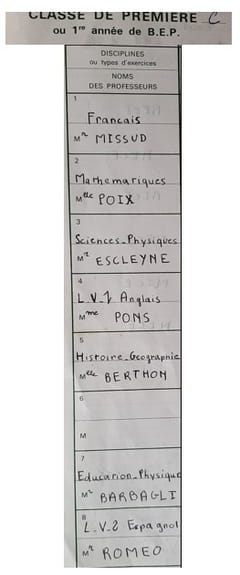 CLASSE DE PREMIÈRE C
ou 1re année de B.E.P.
DISCIPLINES
ou types d'exercices
NOMS
DES PROFESSEURS
1
Francais
Mr MISSUD
2
Mathemariques
Melle POIX
3
Sciences-Physiques
Mr ESCLEYNE
4
L.V.1 Anglais
Mme PONS
5
Histoire-Geographie
Melle BERTHON
6
M
7
Education-Physique
Mr BARBAGLI
8
L.V.2 Espagnol
Mr ROMEO